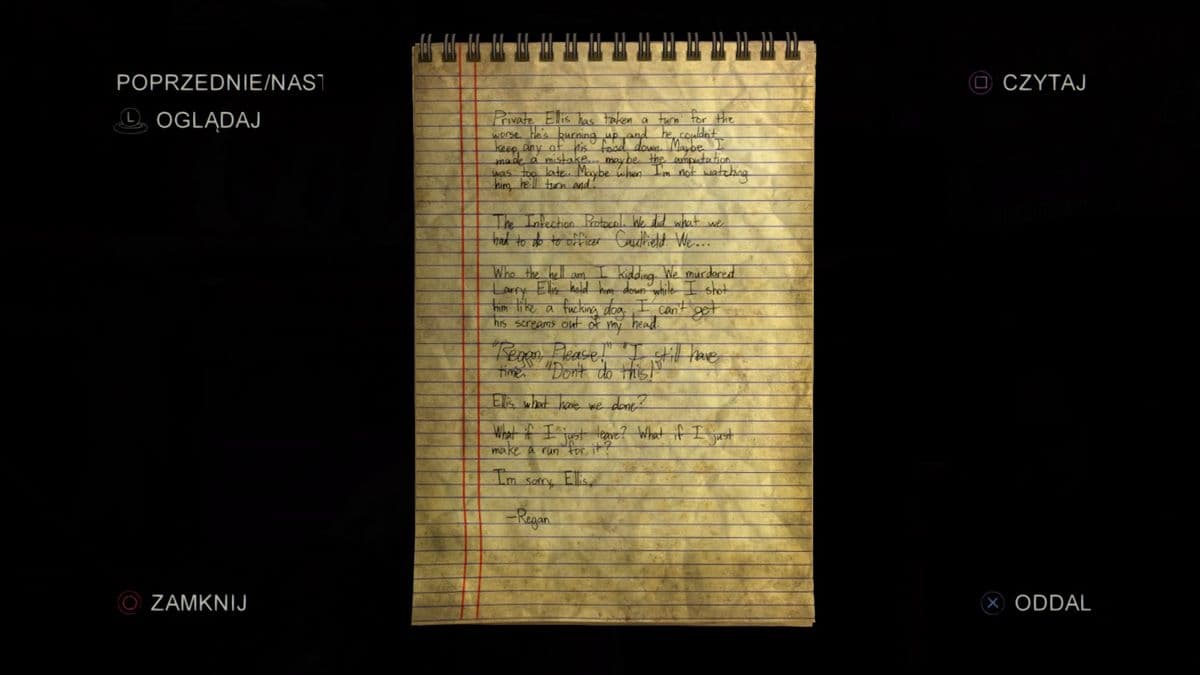 POPRZEDNIE/NAST
OGLĄDAJ
CZYTAJ
Private Ellis has taken a turn for the
worse. He's burning up and he couldn't
keep any of his food down. Maybe I
made a mistake... maybe the amputation
was too late. Maybe when I'm not watching
him, he'll turn and.
The Infection Protocol. We did what we
had to do to officer Caulfield. We...
Who the hell am I kidding. We murdered
Larry. Ellis held him down while I shot
him like a fucking dog. I can't get
his screams out of my head.
"Regan, Please!" "I still have
time." "Don't do this!"
Ellis, what have we done?
What if I just leave? What if I just
make a run for it?
I'm sorry, Ellis.
-Regan
ZAMKNIJ
ODDAL